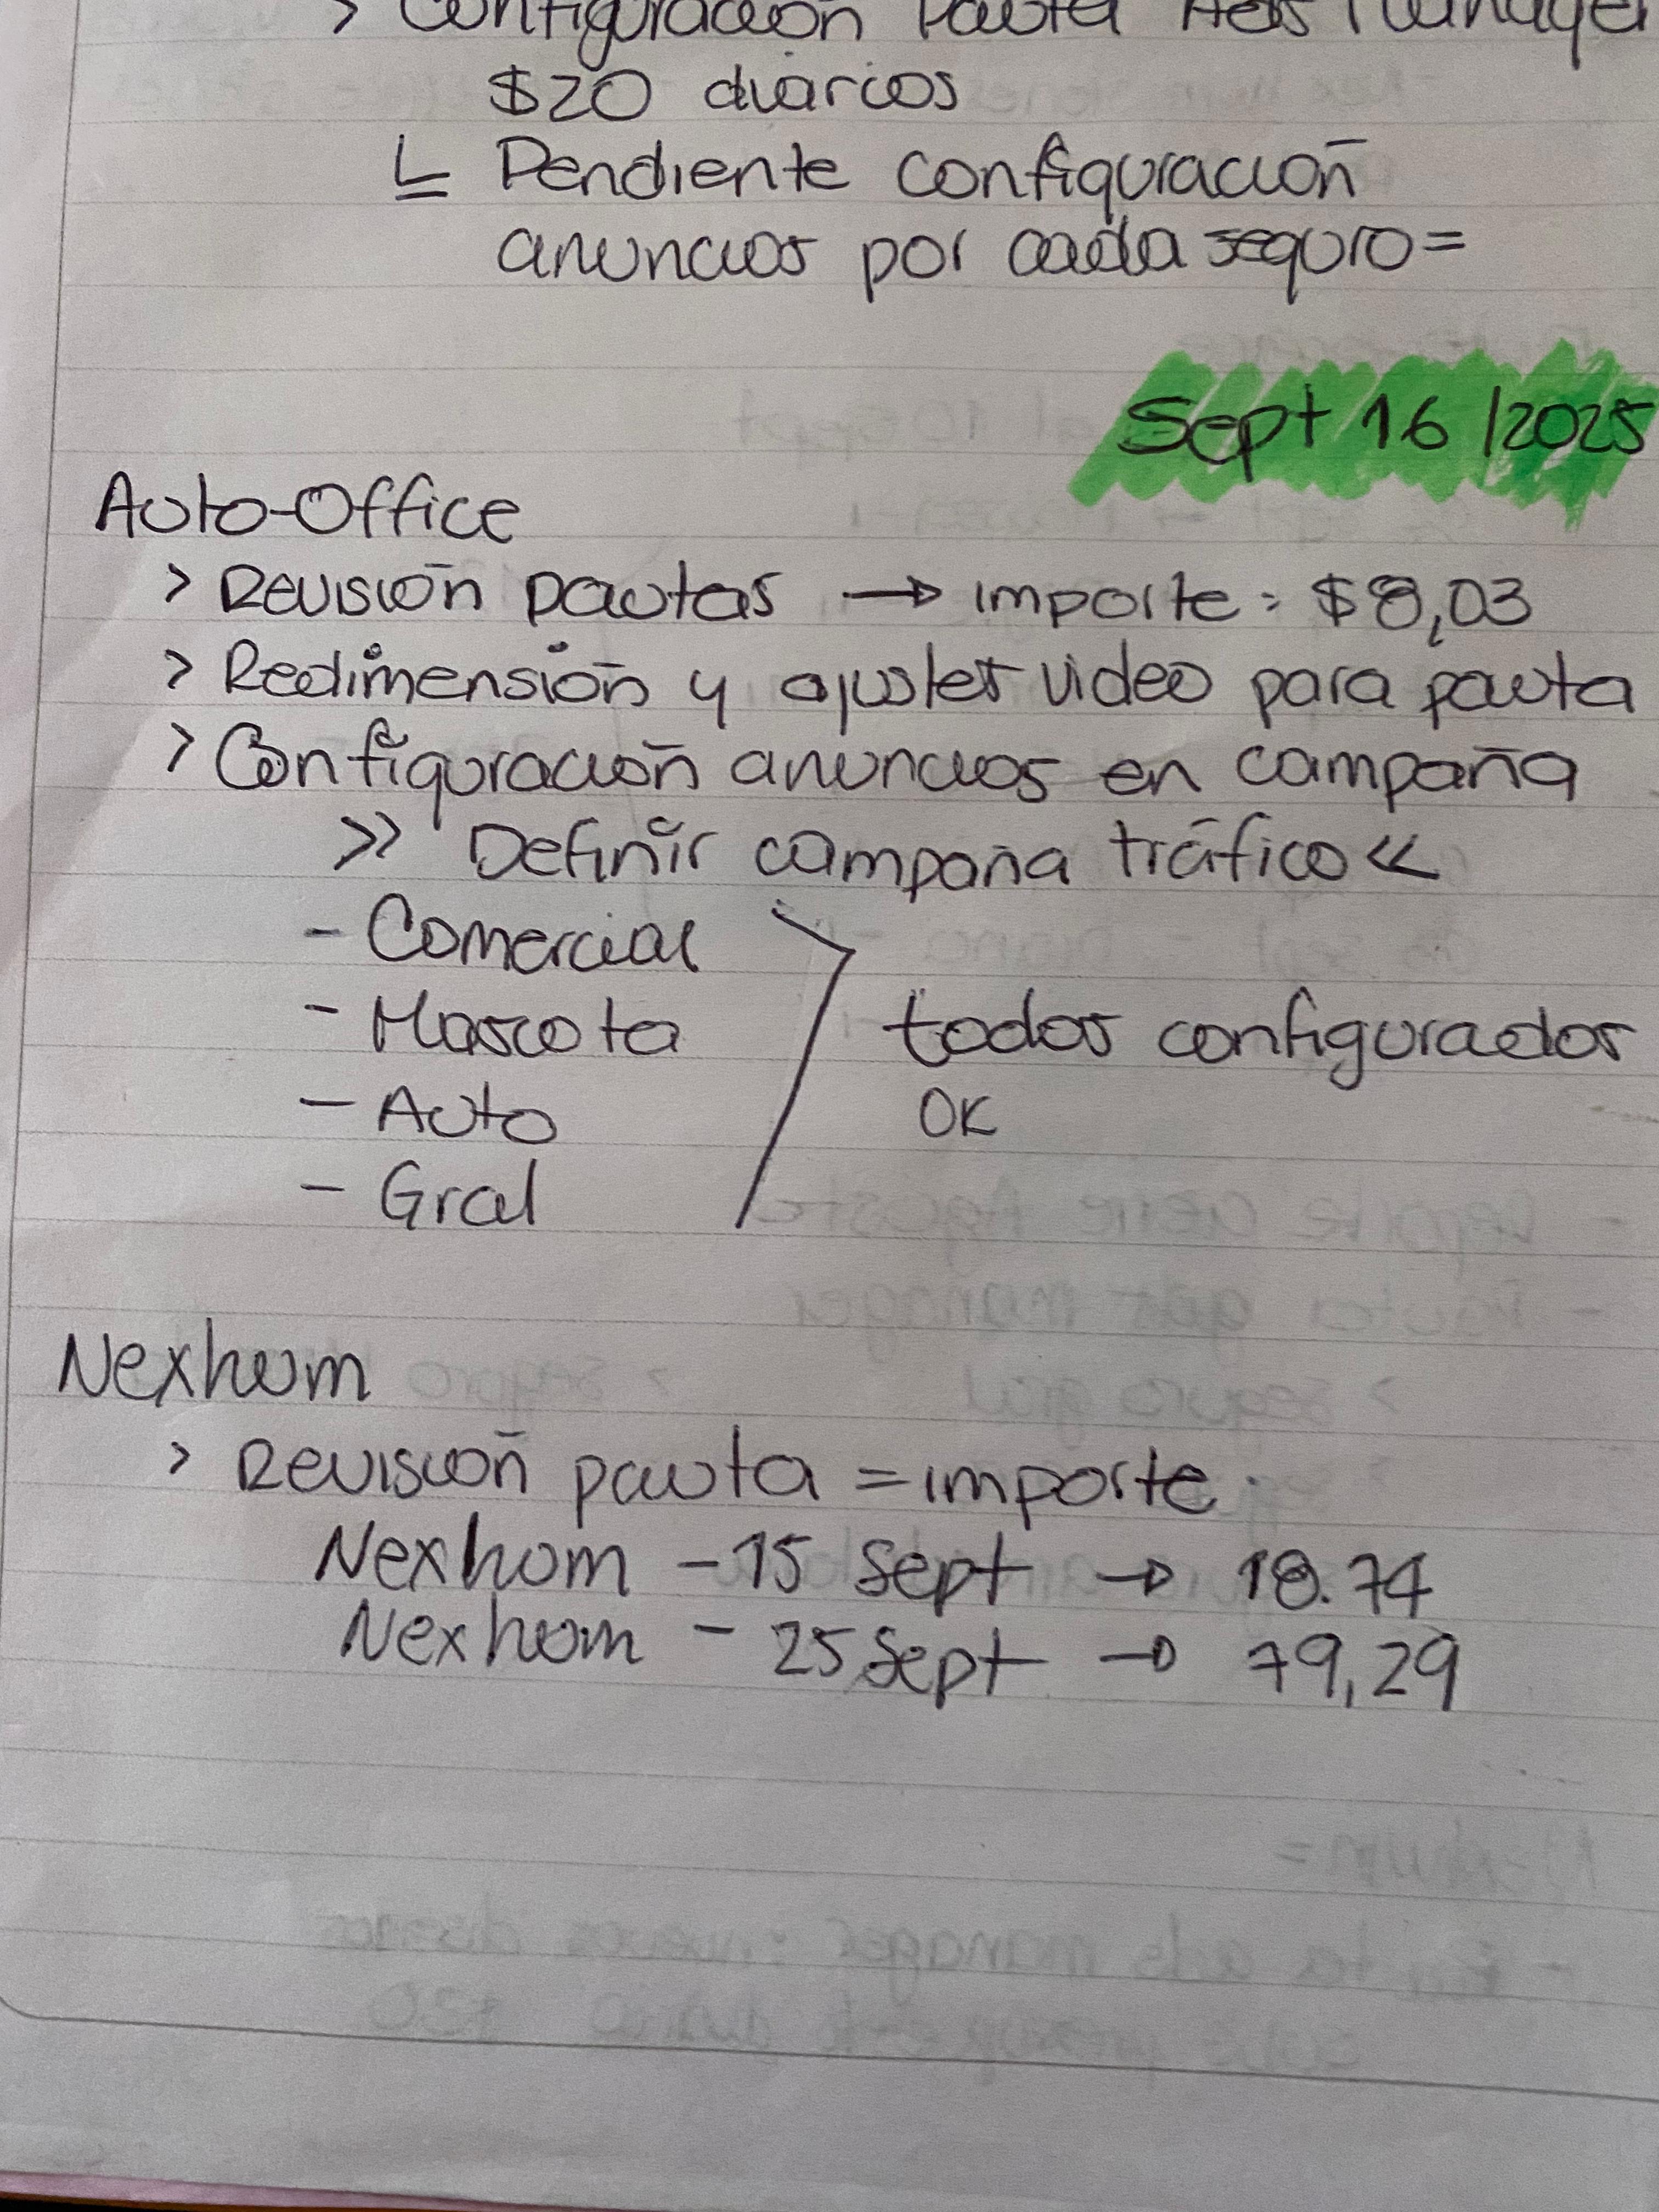 > Configuración Pauta Ads Manager
$20 diarios
Pendiente configuración
anuncios por cada seguro =
Sept 16 / 2025
Auto-Office
> Revisión pautas → importe: $8,03
> Redimensión y ajustes video para pauta
> Configuración anuncios en campaña
>> Definir campaña tráfico <<
- Comercial
- Mascota
- Auto
- Gral
todos configurados
OK
Nexhom
> Revisión pauta = importe.
Nexhom - 15 Sept → 18.74
Nexhom - 25 Sept → 79,29